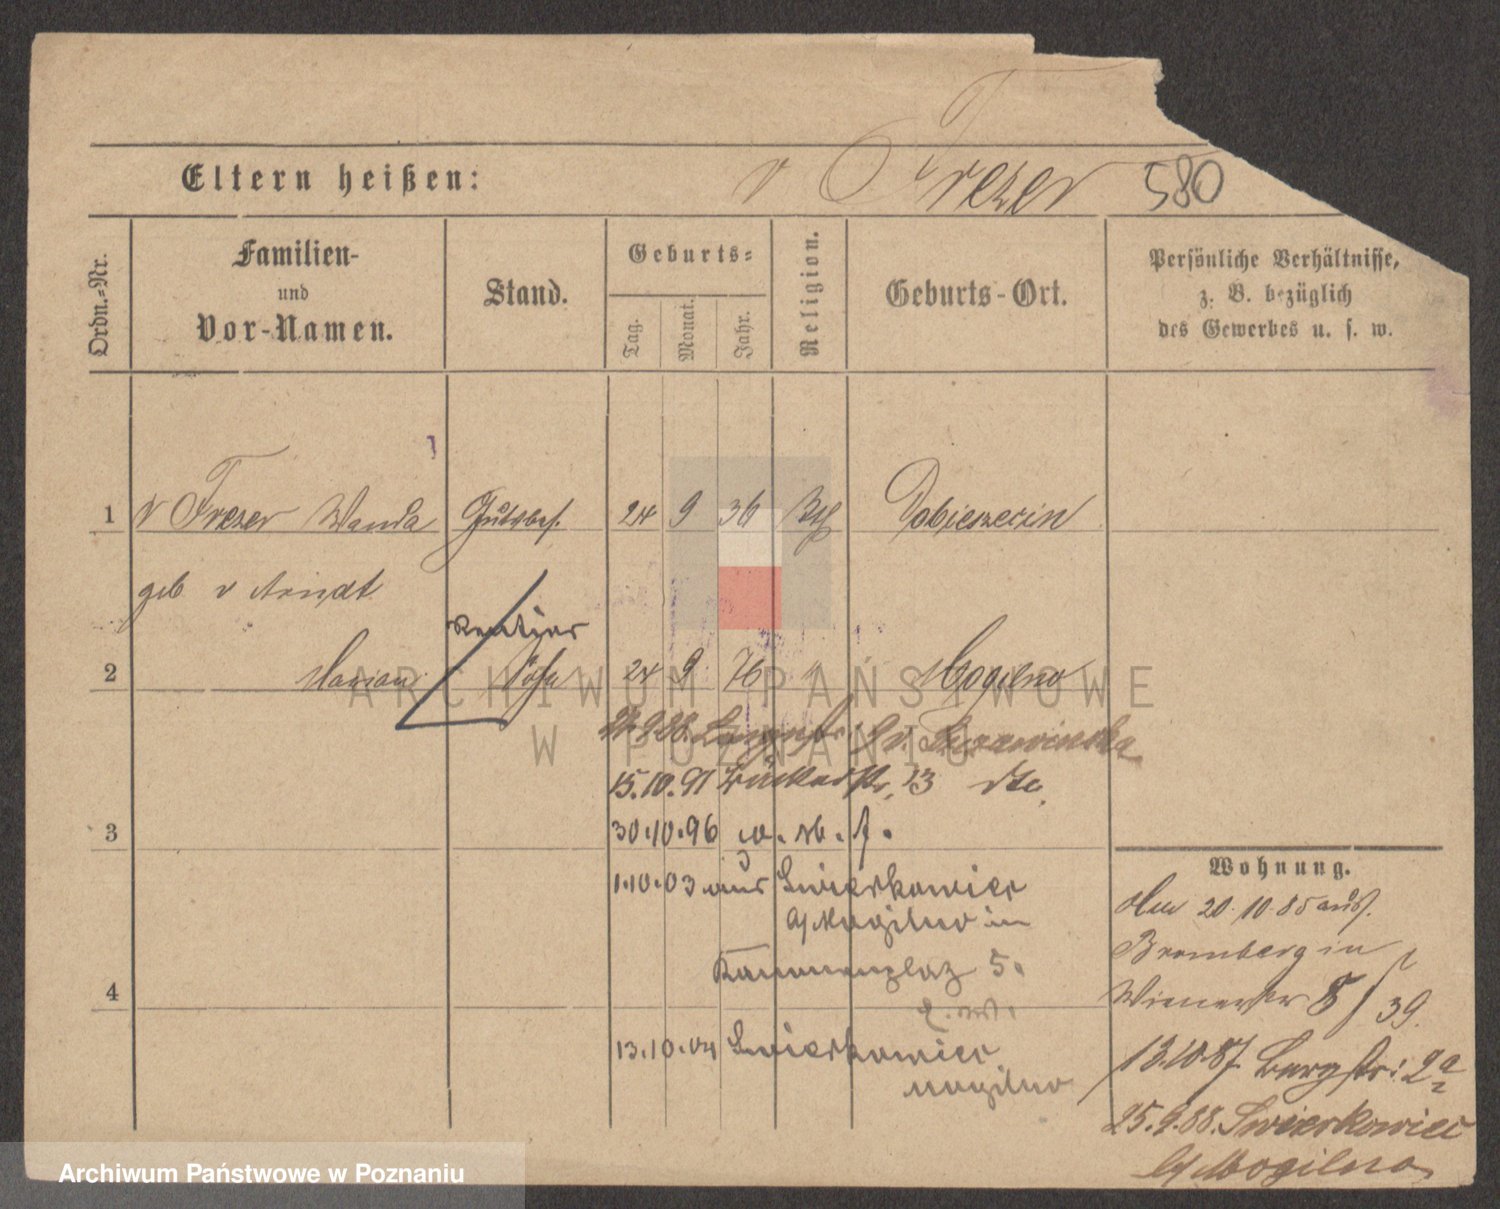 Eltern heißen:
v Trezer 580
Ordn.=Nr.
Familien-
und
Vor-Namen.
Stand.
Geburts=
Tag.
Monat.
Jahr.
Religion.
Geburts-Ort.
Persönliche Verhältnisse,
z. B. bezüglich
des Gewerbes u. s. w.
1 v Trezer Wanda Gutsbes. 24 9 36 Dobieszecin
geb v Arndt
Rentier
2 Marian Sohn 24 9 76 " Mogilno
ARCHIWUM PAŃSTWOWE
W POZNANIU
24.9.88. Langestr.
15.10.91 13 dto.
3
30.10.96
1.10.03 aus Swierkowiec
b/Mogilno in
Kanonenplaz 5.
4
13.10.04 Swierkowiec
Mogilno
Wohnung.
Am 20.10.85 aus
Bromberg in
Wienerstr 8 / 39.
13.10.87. Bergstr: 2a
25.9.88. Swierkowiec
b/Mogilno
Archiwum Państwowe w Poznaniu